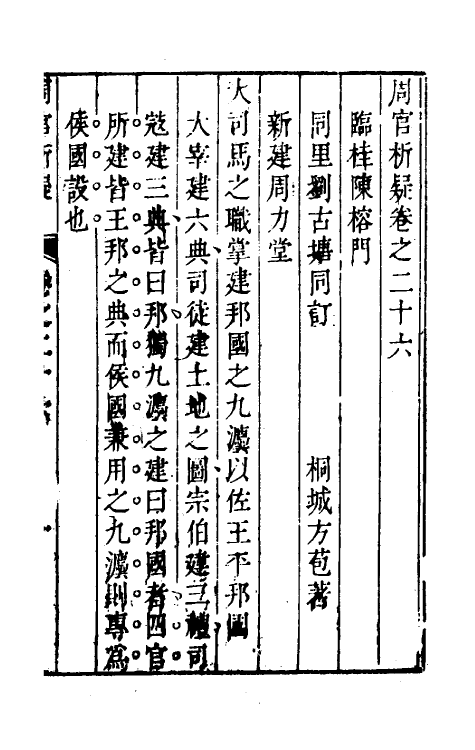 周官析疑卷之二十六
臨桂陳榕門
同里劉古塘同訂 桐城方苞著
新建周力堂
大司馬之職掌建邦國之九灋以佐王平邦國
大宰建六典司徒建土地之圖宗伯建三禮司
寇建三典皆曰邦獨九灋之建曰邦國者四官
所建皆王邦之典而侯國兼用之九灋則專為
侯國設也
周官析疑